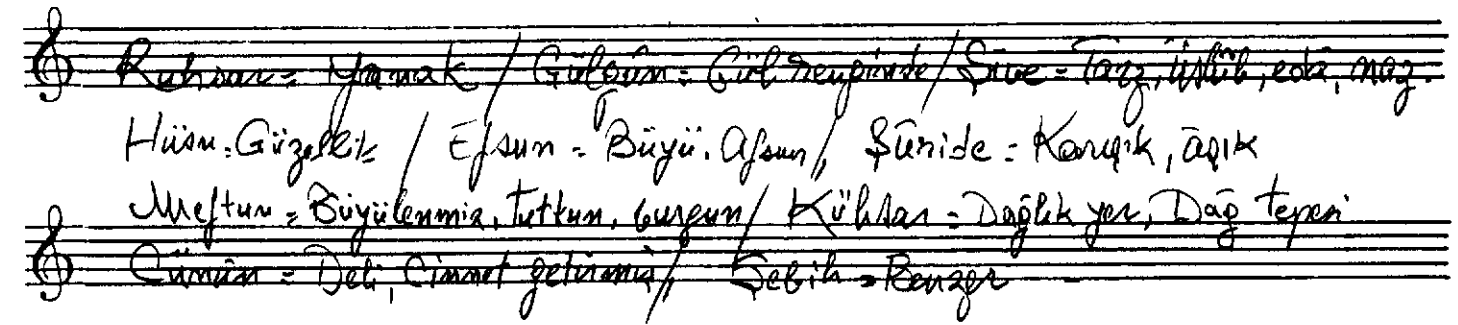 Ruhsar = Yanak / Gülgûn = Gül renginde / Şive = Tarz, üslûb, eda, naz.
Hüsn = Güzellik / Efsun = Büyü. Afsun // Şûride = Karışık, âşık
Meftun = Büyülenmiş, Tutkun, vurgun / Kühsar = Dağlık yer, Dağ tepesi
Cünûn = Deli, Cinnet getirmiş // Şebih = Benzer